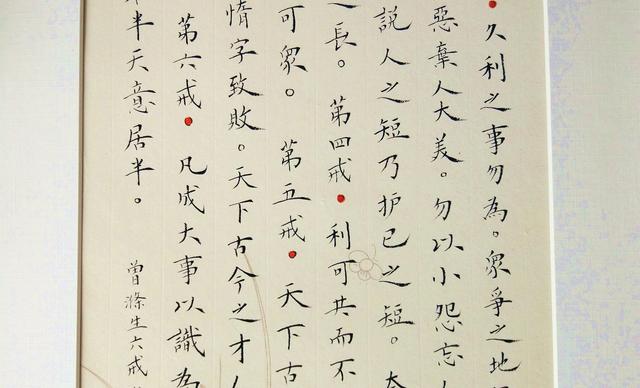 •久利之事勿為。眾爭之地
惡棄人大美。勿以小怨忘人
說人之短乃护己之短。夸
之長。第四戒•利可共而不
可眾。第五戒•天下古
惰字致敗。天下古今之才人
第六戒•凡成大事以識為
半天意居半。
曾滌生六戒